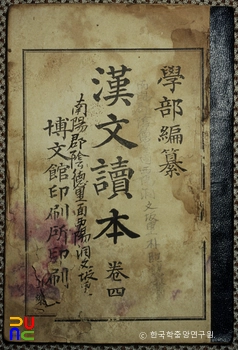 學部編纂
漢文讀本 卷四
南陽郡陰德里面
博文館印刷所印刷
© 한국학중앙연구원